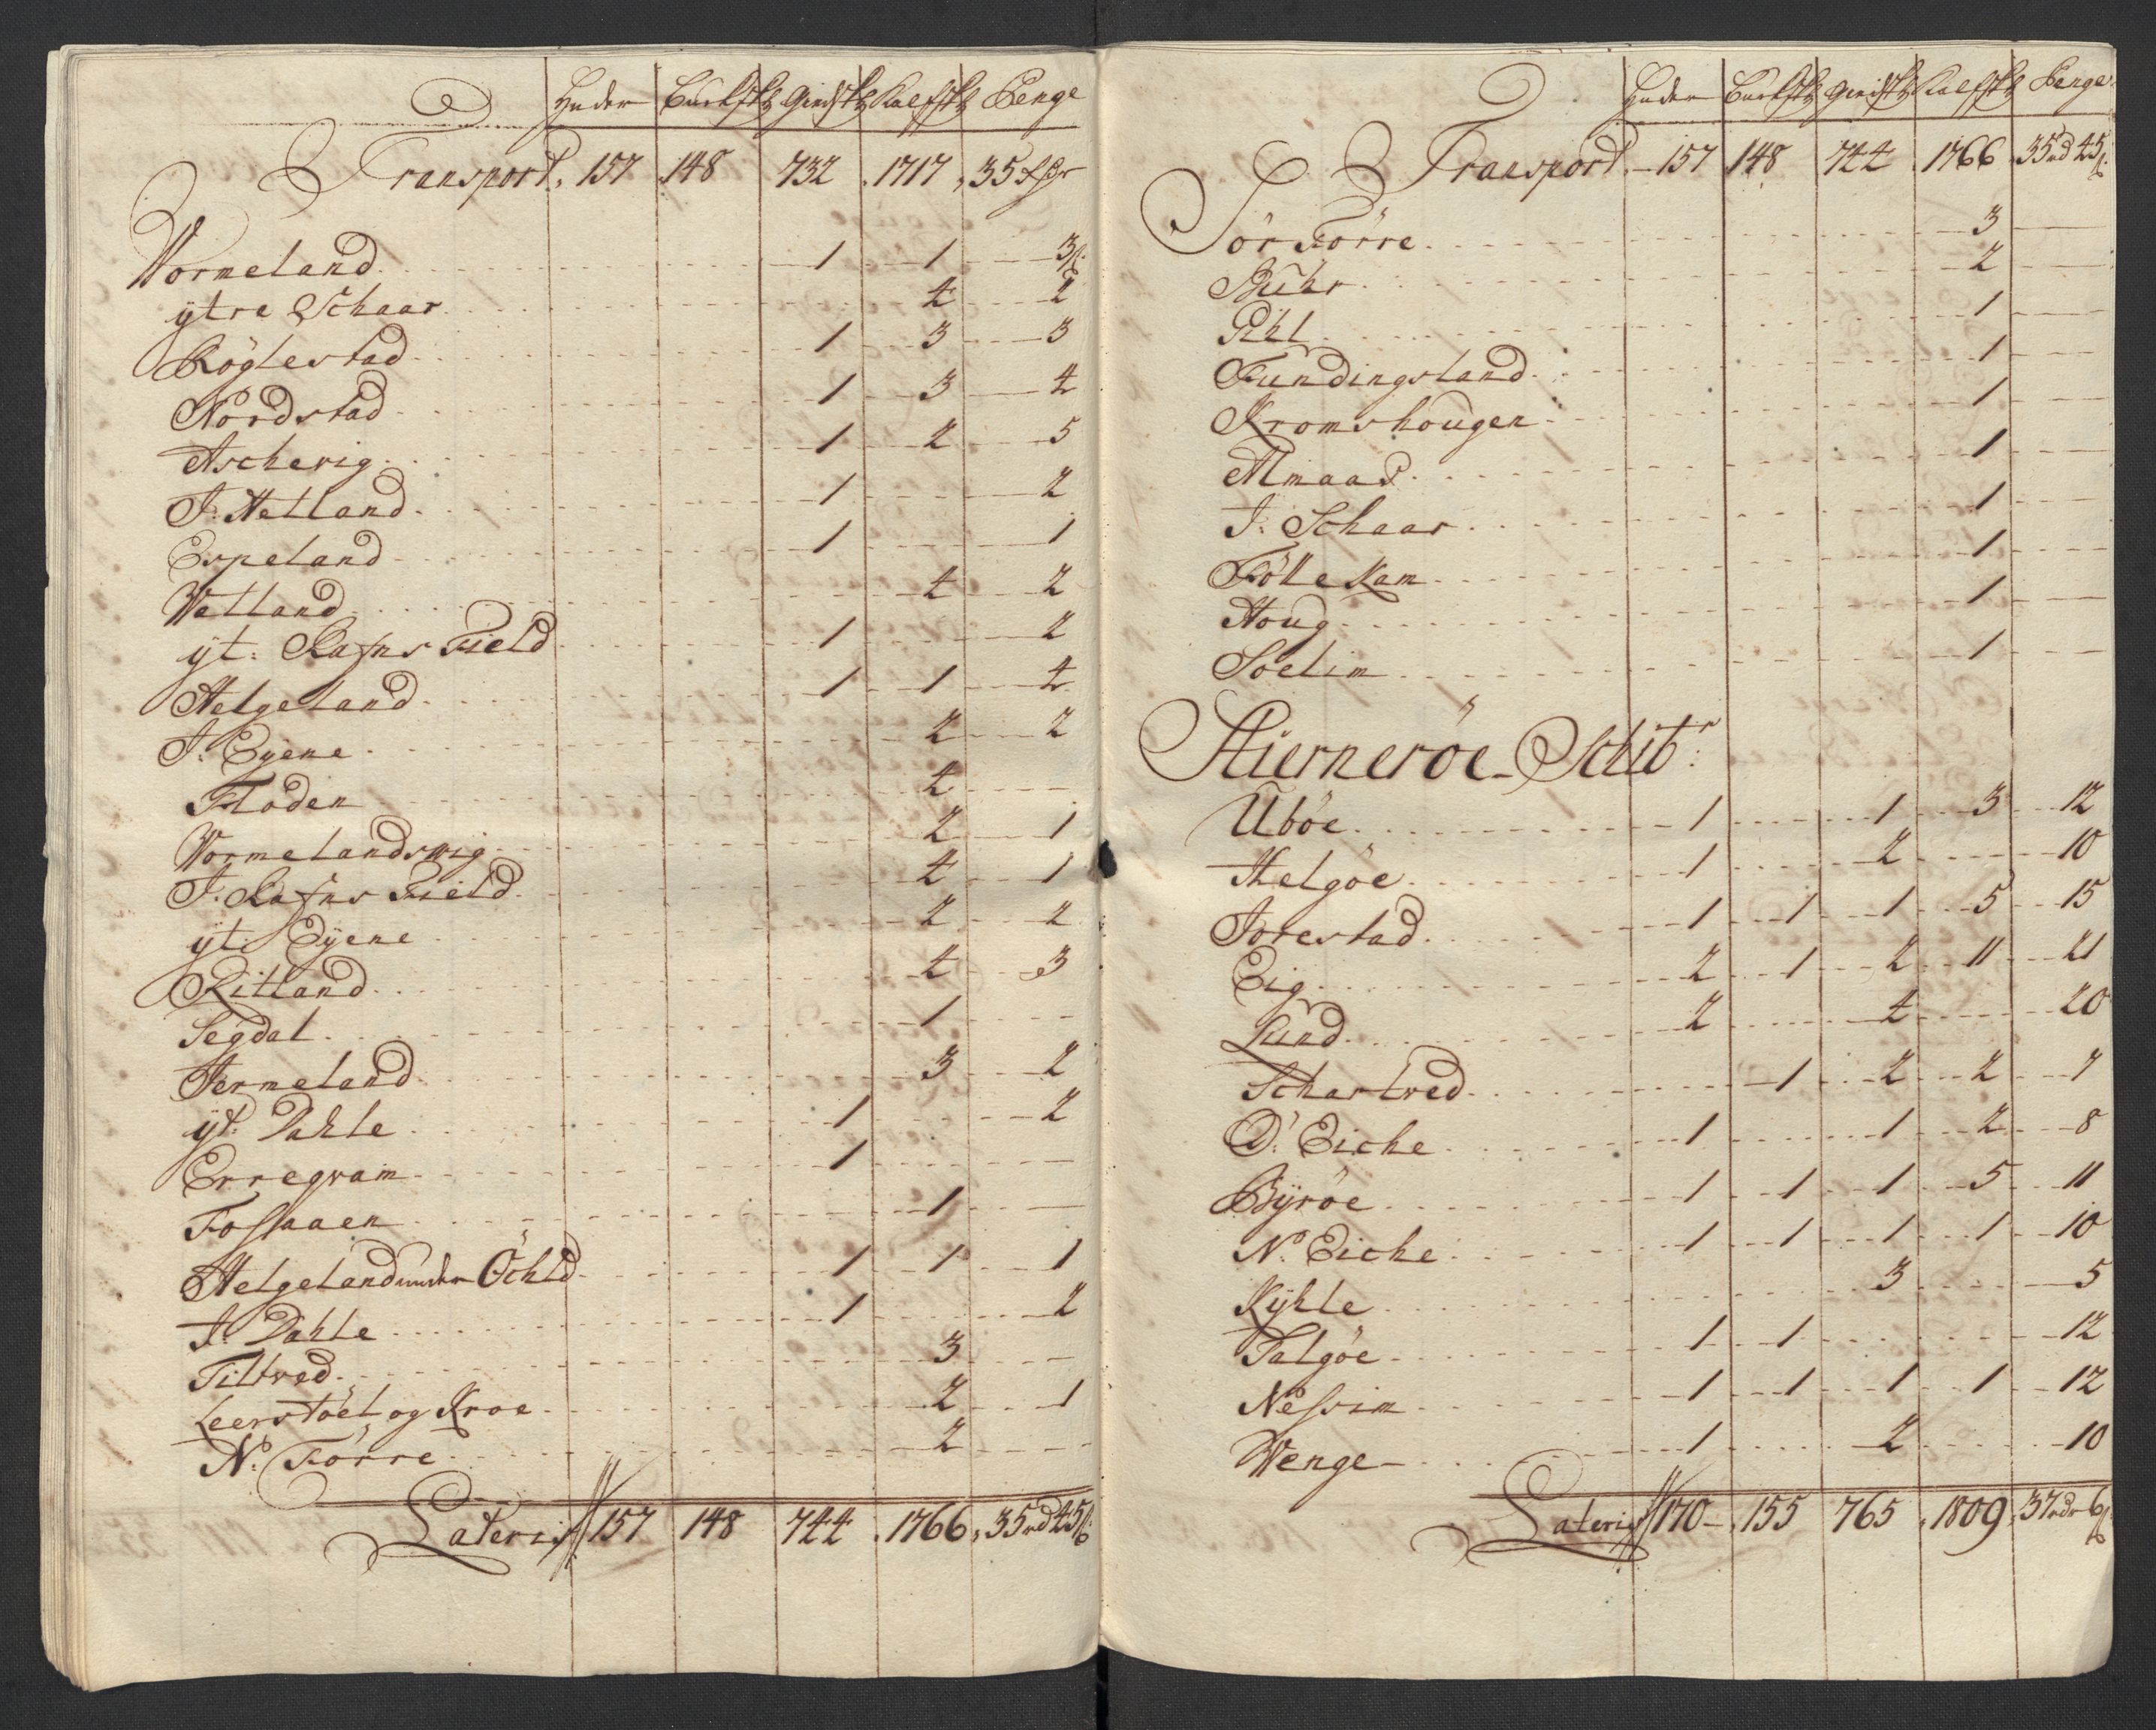 Huder Bucksk: Giedsk: Kalfsk: Penge
Transport, 157 148 732 1717, 35
Wormeland 1 1 3ß
ytre Schaar 4 2
Røglestad 1 3 3
Nordstad 1 3 4
Aschevig 1 2 5
J: Hetland 1 2
Espeland 1 1
Wetland 4 2
yt: Rafns Field 1 2
Helgeland 1 1 4
J: Eyene 2 2
Floden 4
Wormelandswig 2 1
J: Rafns Field 4 1
yt: Eyene 2 2
Ritland 4 3
Segdal 1
Jermeland 3 2
yt: Dahle 1 2
Erregvam 1
Fossaaen 1
Helgeland under Öchld 1 1 1
J: Dahle 1 2
Tiltved 3
Leerstöel og Kroe 2 1
N: Førre 2
Lateris 157 148 744 1766, 35rd 45ß
Huder Bucksk: Giedsk: Kalfsk: Penge
Transport 157 148 744 1766 35rd 45ß
Sör Førre 3
Buhr 2
Pihl 1
Fundingsland 1
Kromshougen 1
Almaas 1
J: Schaar 1
Föllekam 1
Houg 1
Soelim 1
Hierneröe Schibr:
Uböe 1 1 3 12
Helgöe 1 2 10
Jorestad 1 1 1 5 15
Eig 2 1 2 11 21
Lund 2 4 20
Schartved 1 2 2 7
D: Eiche 1 1 2 8
Byröe 1 1 1 5 11
N: Eiche 1 1 1 1 10
Kyhle 3 5
Talgöe 1 1 12
Nessim 1 1 1 1 12
Wenge 1 2 10
Lateris 170 155 765 1809 37rdr 6ß